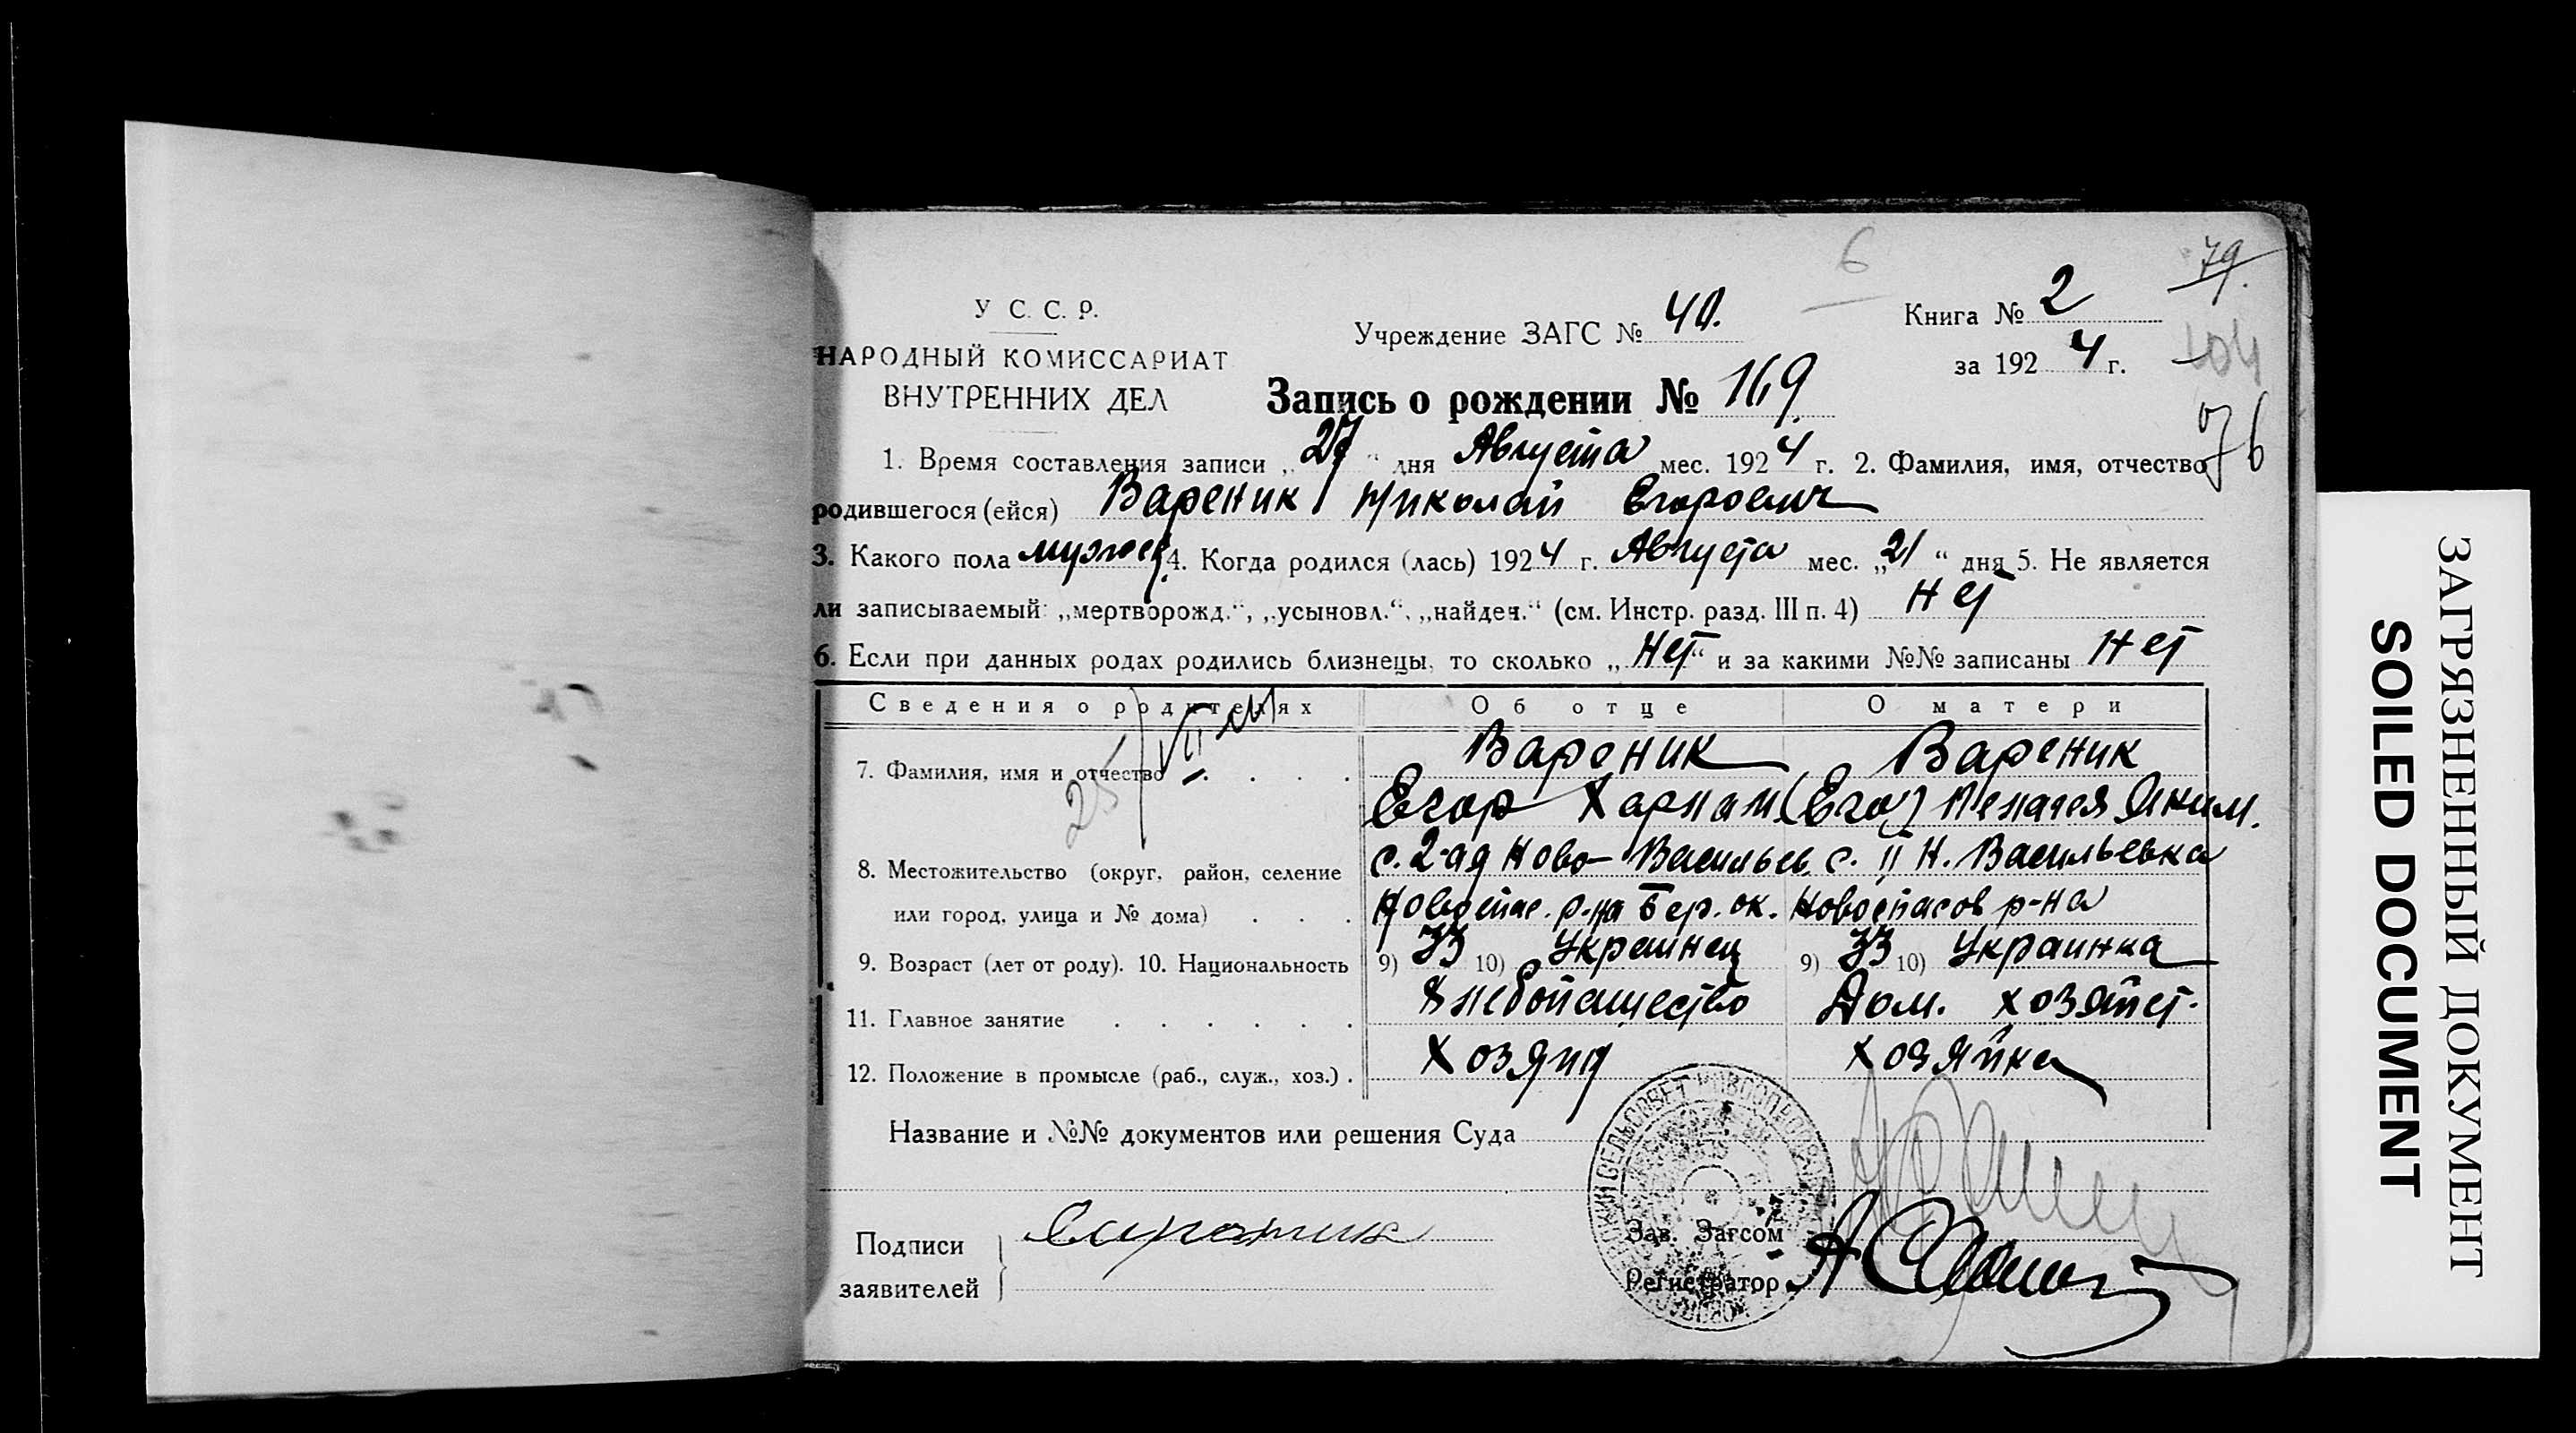 6
79.
У С. С. Р.
Учреждение ЗАГС № 40.
Книга № 2
НАРОДНЫЙ КОМИССАРИАТ
за 1924 г.
104
ВНУТРЕННИХ ДЕЛ
Запись о рождении № 169.
76
1. Время составления записи „27“ дня Августа мес. 1924 г. 2. Фамилия, имя, отчество
родившегося (ейся) Вареник Николай Егорович
3. Какого пола мужск. 4. Когда родился (лась) 1924 г. Августа мес. „21“ дня 5. Не является
ли записываемый: „мертворожд.“, „усыновл.“, „найден.“ (см. Инстр. разд. III п. 4) Нет
6. Если при данных родах родились близнецы, то сколько „Нет“ и за какими №№ записаны Нет
Сведения о родителях Об отце О матери
25
7. Фамилия, имя и отчество Вареник Вареник
Егор Харлам. (Его) Пелагея Яким.
8. Местожительство (округ, район, селение с. 2-ая Ново-Васильев. с. II Н. Васильевка
или город, улица и № дома) Новоспас. р-на Бер. ок. Новоспасов р-на
9. Возраст (лет от роду). 10. Национальность 9) 33 10) Украинец 9) 33 10) Украинка
11. Главное занятие Хлебопашество Дом. хозяйст.
12. Положение в промысле (раб., служ., хоз.) Хозяин Хозяйка
Название и №№ документов или решения Суда
Подписи
заявителей
Зав. Загсом
Регистратор
ЗАГРЯЗНЕННЫЙ ДОКУМЕНТ
SOILED DOCUMENT